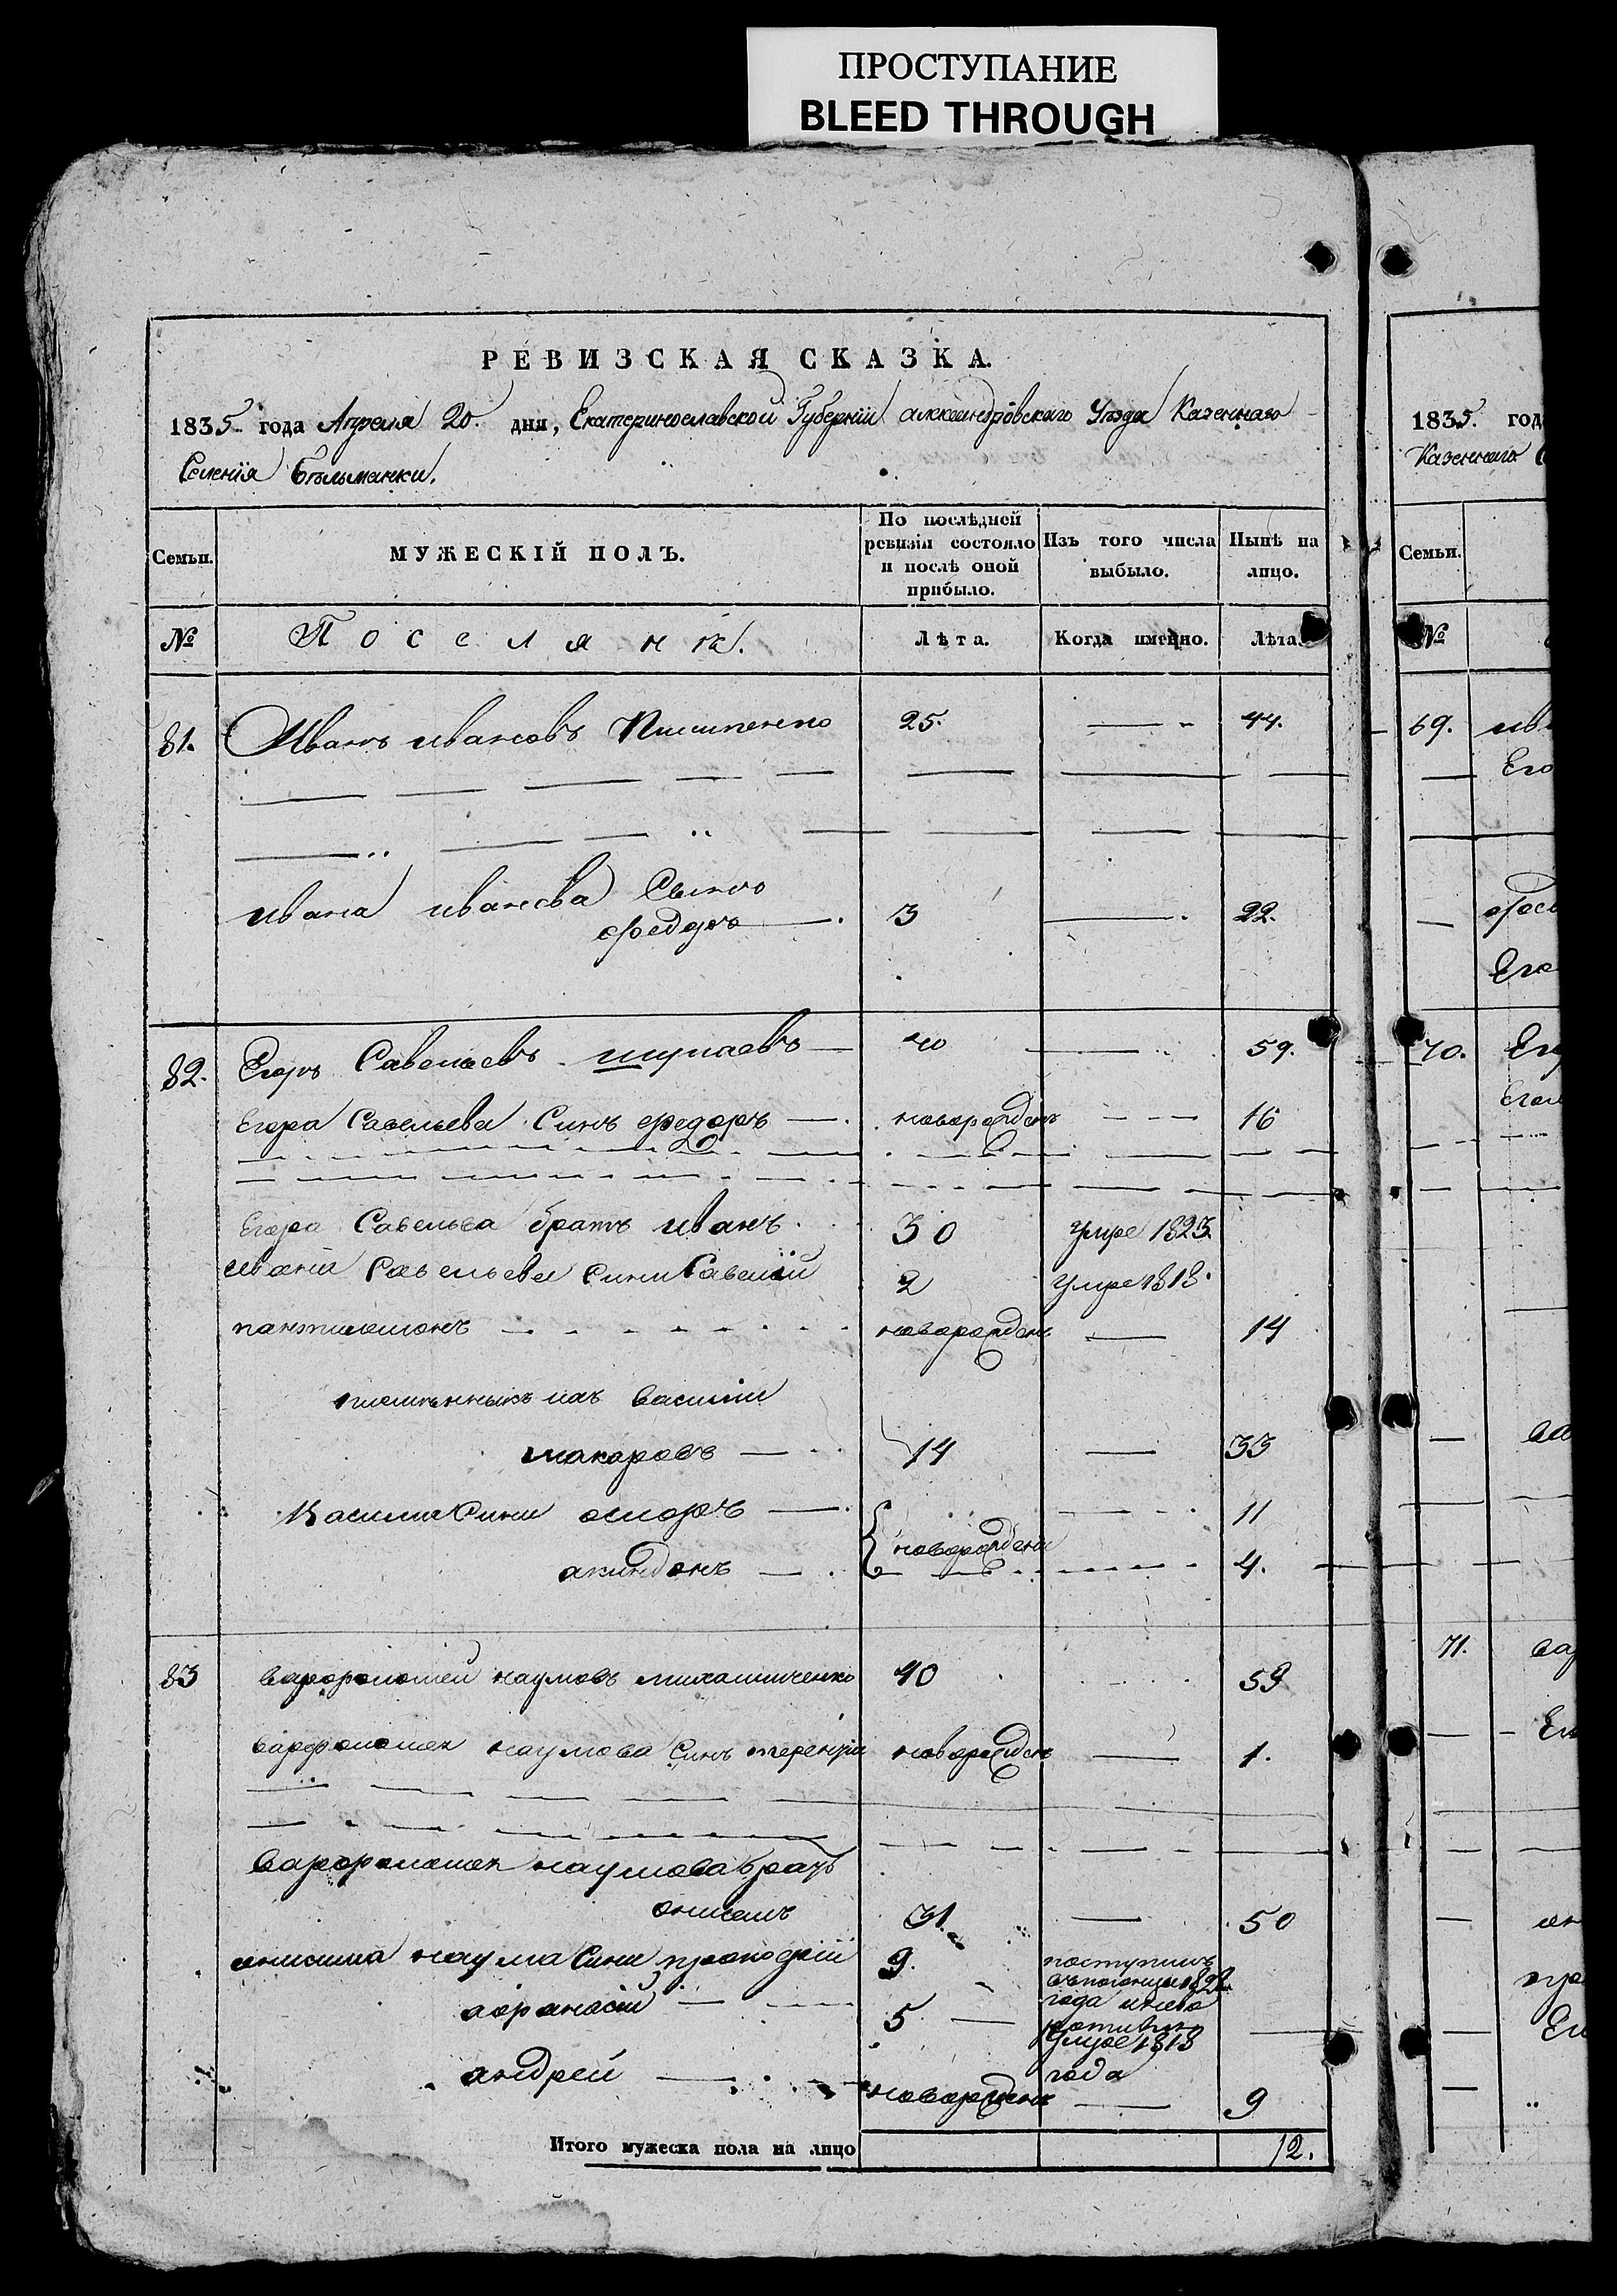 ПРОСТУПАНИЕ
BLEED THROUGH
РЕВИЗСКАЯ СКАЗКА.
1835 года Апреля 20. дня, Екатеринославской Губернии александровского Уезда Казеннаго
Селенія Бельманки.
Семьи. МУЖЕСКІЙ ПОЛЪ. По послѣдней ревизіи состояло и послѣ оной прибыло. Изъ того числа выбыло. Нынѣ на лицо.
№ Поселяне. Лѣта. Когда именно. Лѣта.
81. Иванъ ивановъ 25. 44.
ивана иванова Сынъ
федоръ 3 22.
82. Егоръ Савельевъ 40 59.
Егора Савельева Синъ федоръ новорожденъ 16
Егора Савельева братъ иванъ 30 умре 1823.
ивана Савельева Сини Савелій 2 умре 1818.
пантилимонъ новорожденъ 14
племенникъ ихъ василий
макаровъ 14 33
Василия Сини 11
акиндонъ новорождени 4.
83 варфоломей наумовъ михайличенко 40 59
варфоломея наумова Синъ терентий новорожденъ 1.
варфоломея наумова братъ
онисимъ 31. 50
онисима наума Сини прокофий 9. поступилъ
1828
года
афанасий 5 умре 1818
года
андрей новорожденъ 9
Итого мужеска пола на лицо 12.
1835. год
Казеннаго
Семьи.
№
69. ив
Его
фед
Его
70. Его
Егор
ва
71. вар
Его
он
про